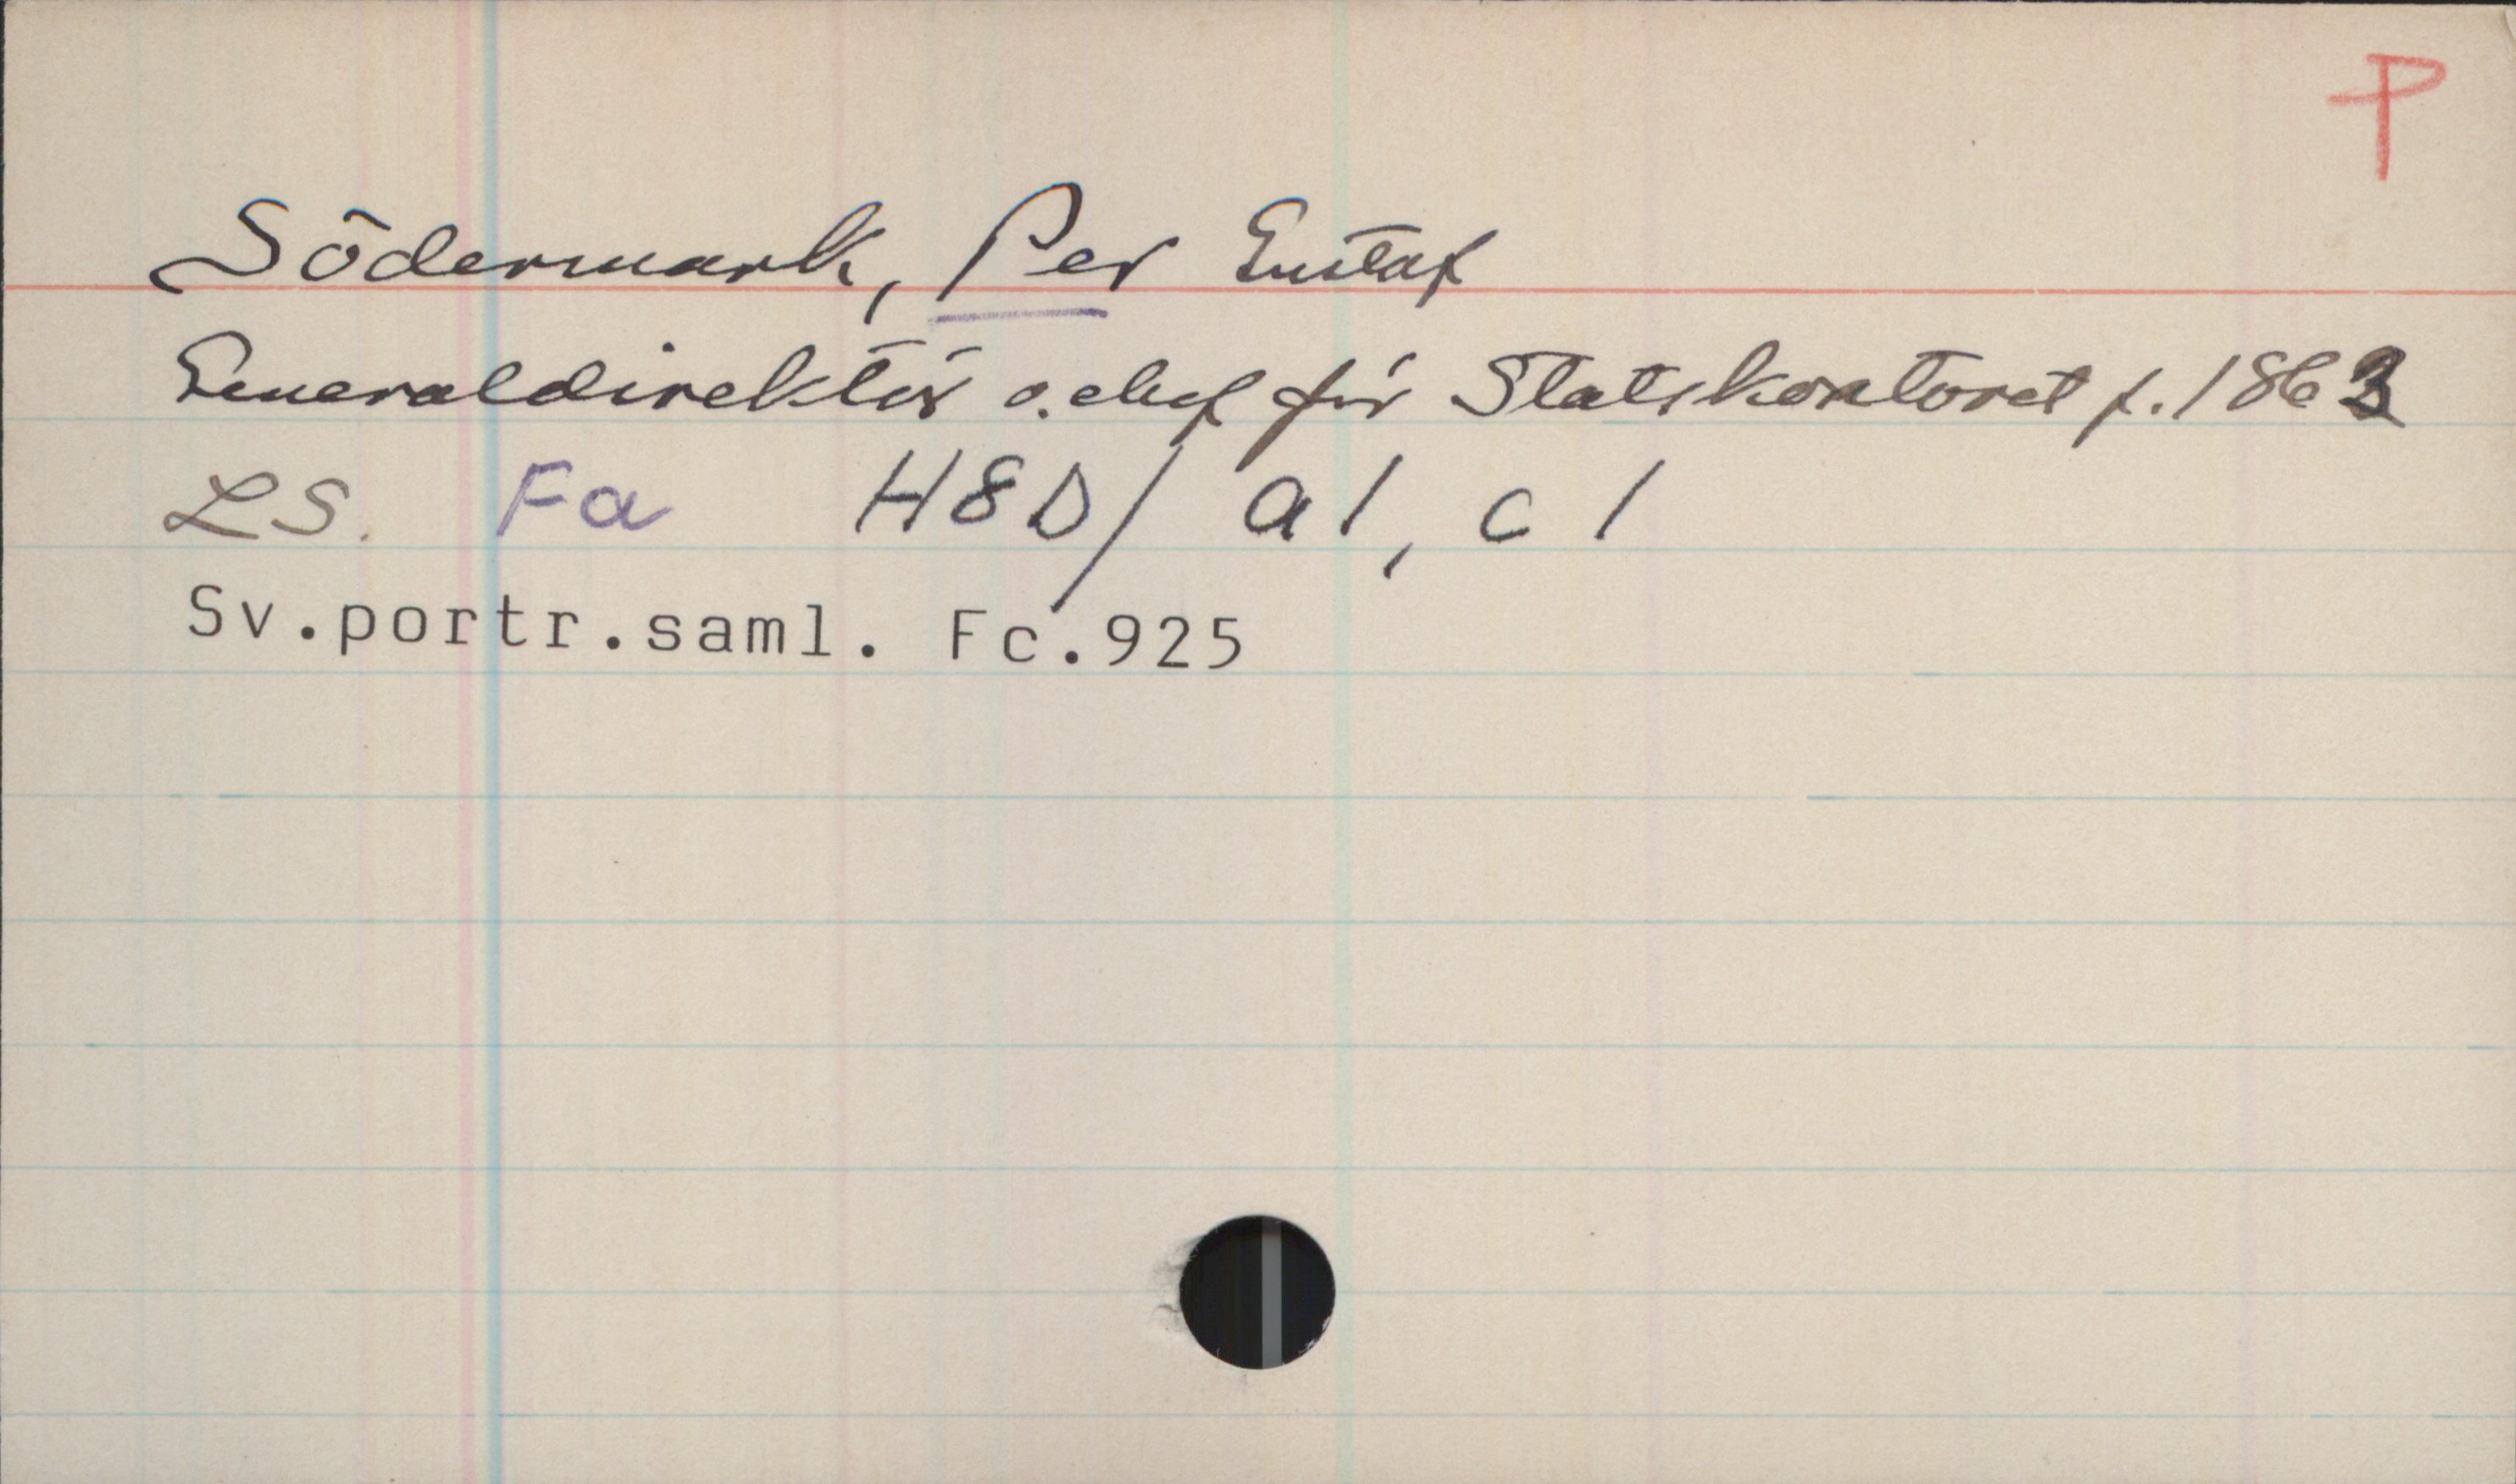 P
Södermark, Per Gustaf
Generaldirektör o. chef för Statskontoret f. 1863
LS. Fa H8D/ a1, c1
Sv.portr.saml. Fc.925